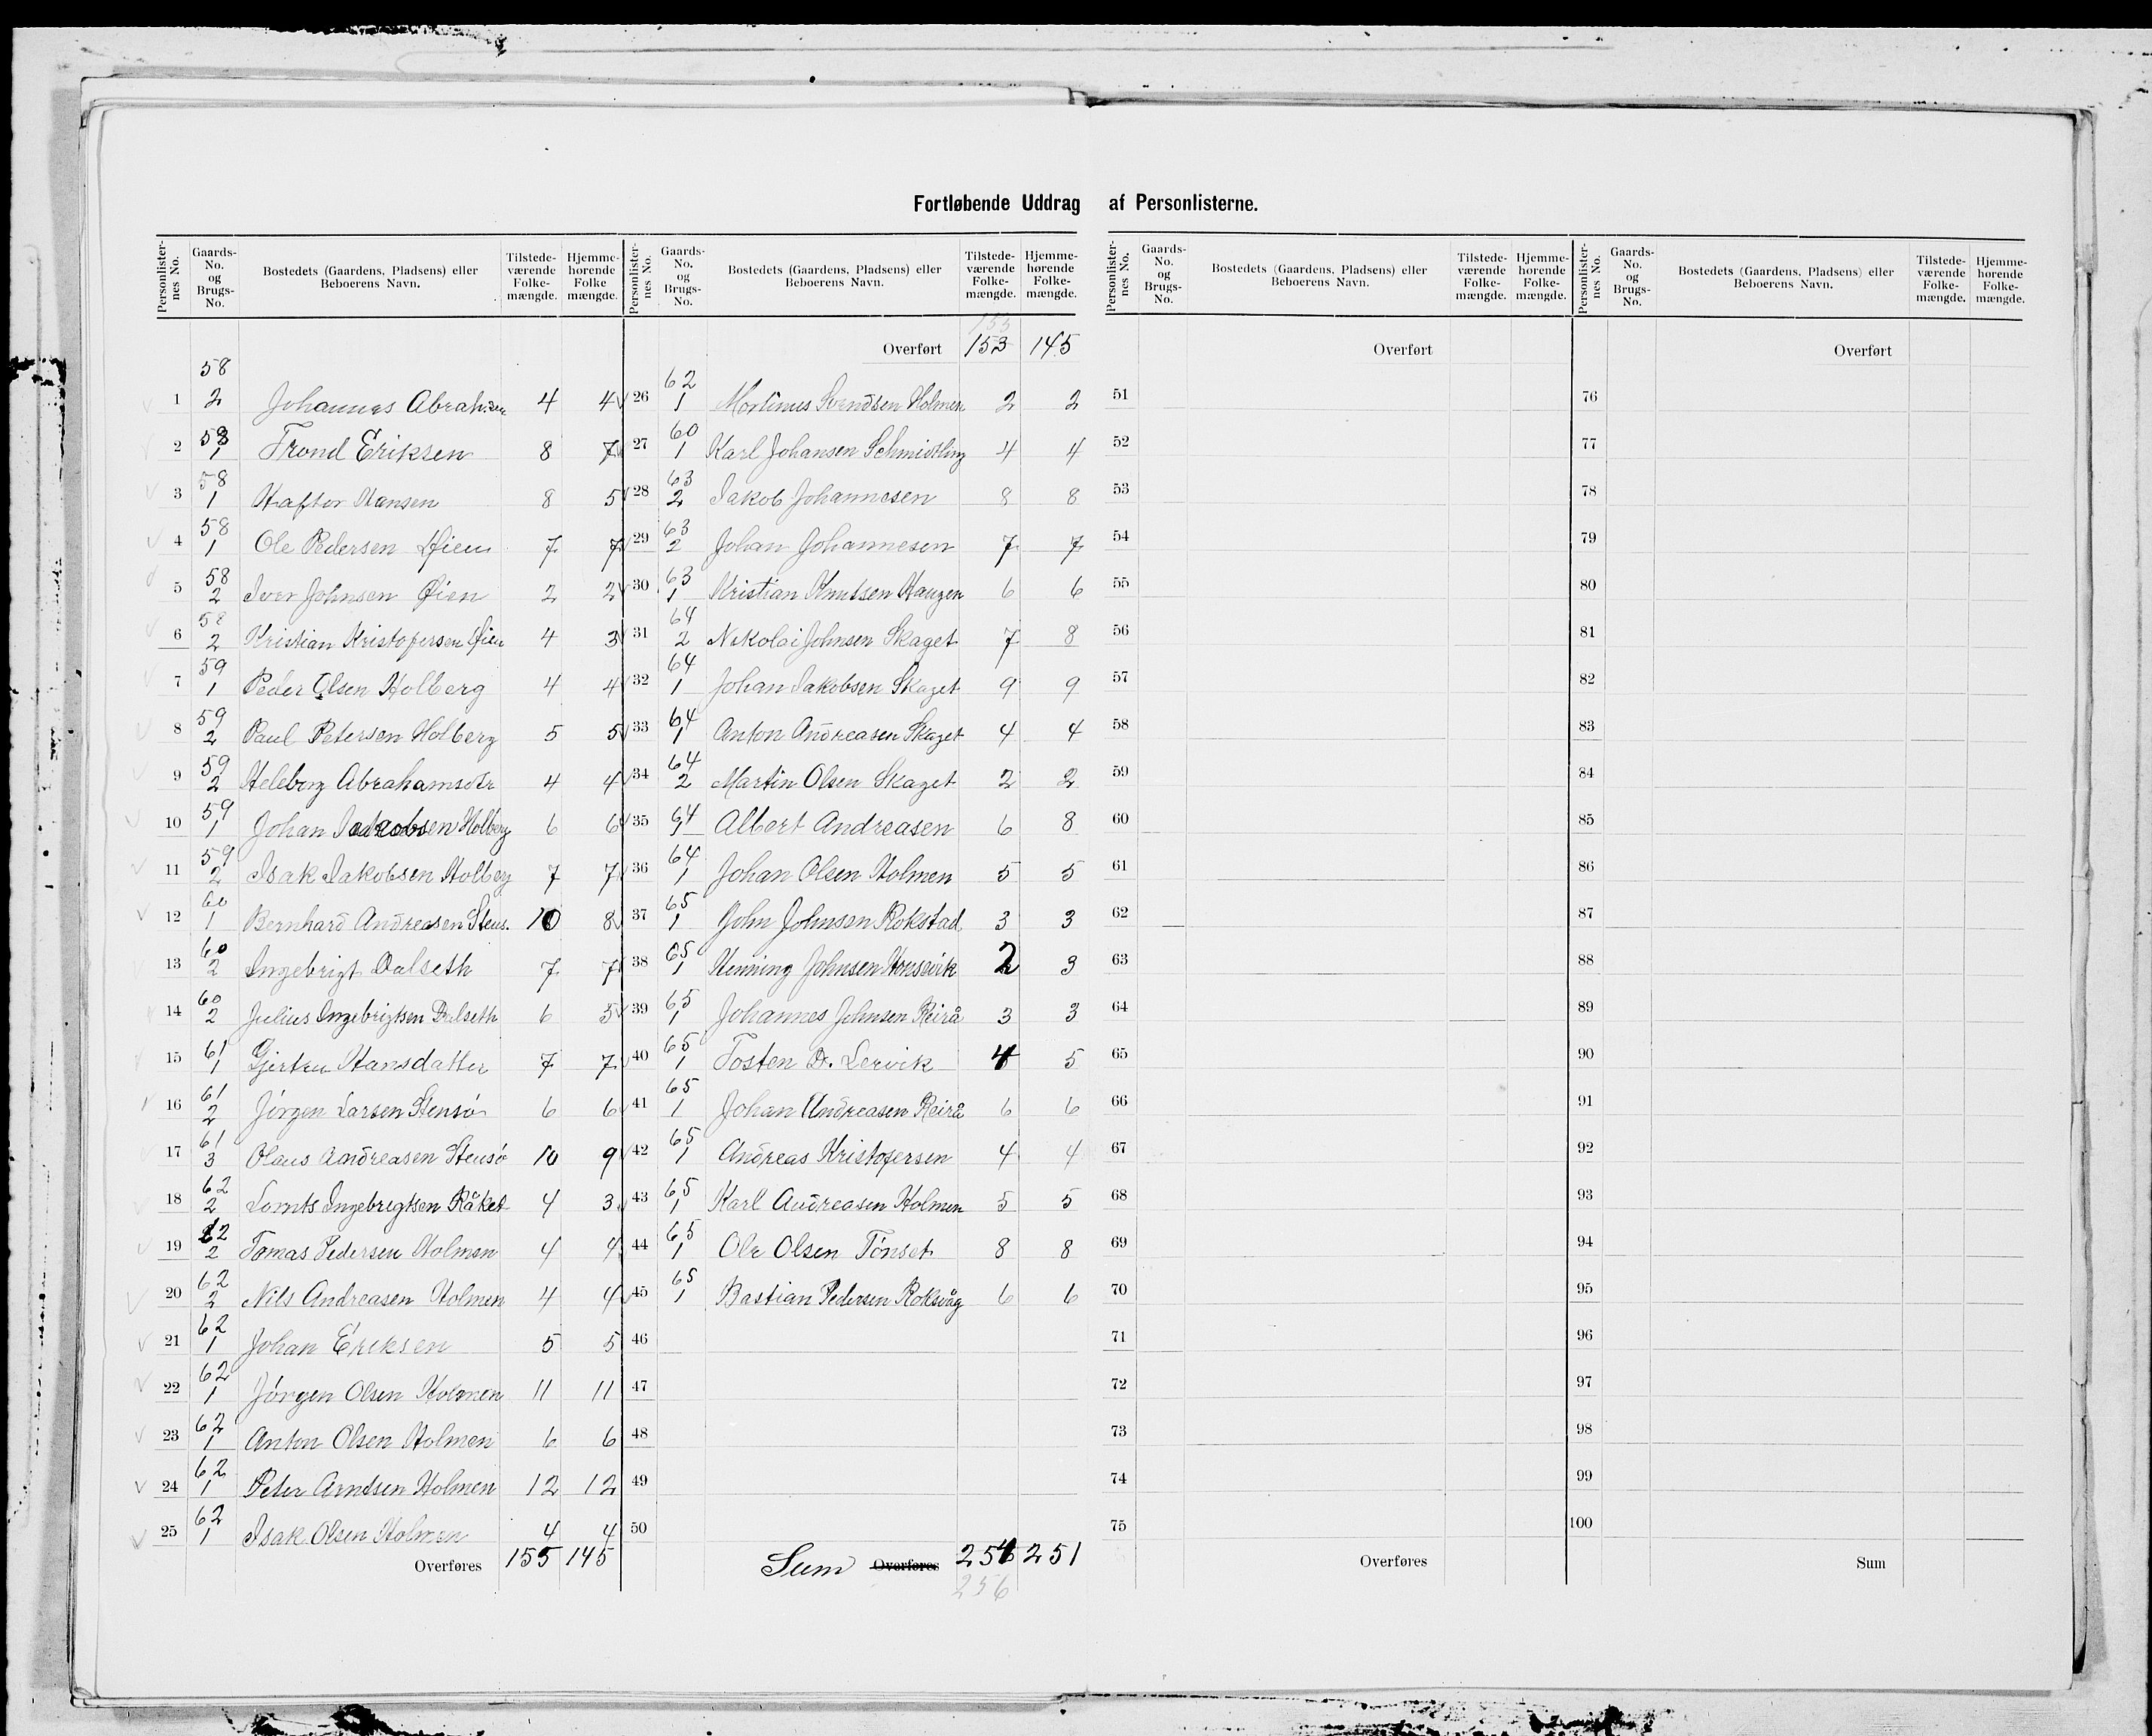 Fortløbende Uddrag af Personlisterne.
Personlister-nes No. Gaards-No. og Brugs-No. Bostedets (Gaardens, Pladsens) eller Beboerens Navn. Tilstede-værende Folke-mængde. Hjemme-hørende Folke mængde. Personlister-nes No. Gaards-No. og Brugs-No. Bostedets (Gaardens, Pladsens) eller Beboerens Navn. Tilstede-værende Folke-mængde. Hjemme-hørende Folke-mængde.
1 58 2 Johannes Abrahsen 4 4
2 58 1 Trond Eriksen 8 7
3 58 1 Haftor Hansen 8 5
4 58 1 Ole Pedersen Øien 7 7
5 58 2 Iver Johnsen Øien 2 2
6 58 2 Kristian Kristofersen Øien 4 3
7 59 1 Peder Olsen Holberg 4 4
8 59 2 Paul Petersen Holberg 5 5
9 59 2 Heleborg Abrahamsdtr 4 4
10 59 1 Johan Jakobsen Holberg 6 6
11 59 2 Isak Jakobsen Holberg 7 7
12 60 1 Bernhard Andreasen Stens. 10 8
13 60 2 Ingebrigt Dalseth 7 7
14 60 2 Julius Ingebrigtsen Dalseth 6 5
15 61 1 Gjertru Hansdatter 7 7
16 61 2 Jørgen Larsen Stensø 6 6
17 61 3 Olaus Andreasen Stensø 10 9
18 62 2 Lornts Ingebrigtsen Råket 4 3
19 62 2 Tomas Pedersen Holmen 4 4
20 62 2 Nils Andreasen Holmen 4 4
21 62 1 Johan Eriksen 5 5
22 62 1 Jørgen Olsen Holmen 11 11
23 62 1 Anton Olsen Holmen 6 6
24 62 1 Peter Arntsen Holmen 12 12
25 62 1 Isak Olsen Holmen 4 4
Overføres 155 145
153
Overført 153 145
26 62 1 Mortinus Svendsen Holmen 2 2
27 60 1 Karl Johansen Schmidtling 4 4
28 63 2 Jakob Johannesen 8 8
29 63 2 Johan Johannesen 7 7
30 63 1 Kristian Knutsen Haugen 6 6
31 64 2 Nikolai Johnsen Skaget 7 8
32 64 1 Johan Jakobsen Skaget 9 9
33 64 1 Anton Andreasen Skaget 4 4
34 64 2 Martin Olsen Skaget 2 2
35 64 1 Albert Andreasen 6 8
36 64 1 Johan Olsen Holmen 5 5
37 65 1 John Johnsen Rokstad 3 3
38 65 1 Henning Johnsen Honsvik 2 3
39 65 1 Johannes Johnsen Reirå 3 3
40 65 1 Tosten D. Lervik 4 5
41 65 1 Johan Andreasen Reirå 6 6
42 65 1 Andreas Kristofersen 4 4
43 65 1 Karl Andreasen Holmen 5 5
44 65 1 Ole Olsen Tønset 8 8
45 65 1 Bastian Pedersen Roksvåg 6 6
46
47
48
49
50
Sum Overføres 254 251
256
Personlister-nes No. Gaards-No. og Brugs-No. Bostedets (Gaardens, Pladsens) eller Beboerens Navn. Tilstede-værende Folke-mængde. Hjemme-hørende Folke-mængde. Personlister-nes No. Gaards-No. og Brugs-No. Bostedets (Gaardens, Pladsens) eller Beboerens Navn. Tilstede-værende Folke-mængde. Hjemme-hørende Folke-mængde.
Overført Overført
51 76
52 77
53 78
54 79
55 80
56 81
57 82
58 83
59 84
60 85
61 86
62 87
63 88
64 89
65 90
66 91
67 92
68 93
69 94
70 95
71 96
72 97
73 98
74 99
75 100
Overføres Sum